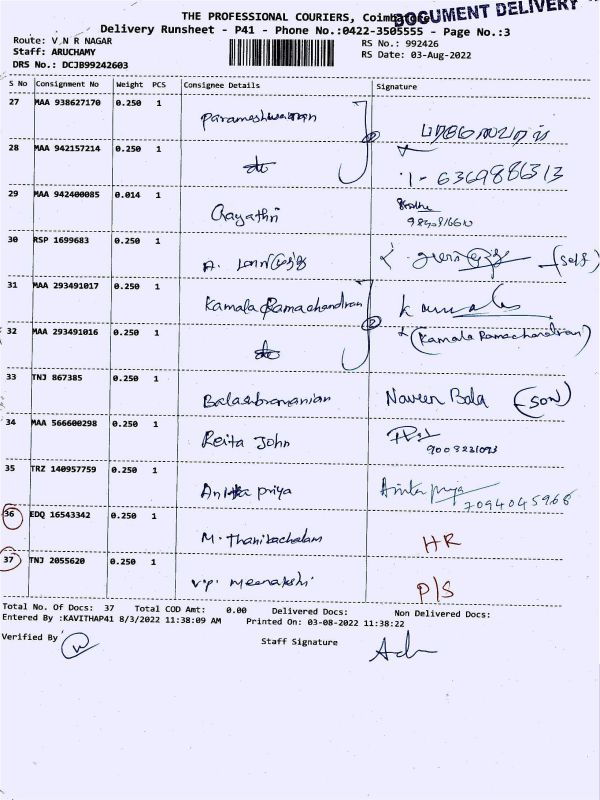 THE PROFESSIONAL COURIERS, Coimbatore
DOCUMENT DELIVERY
Delivery Runsheet - P41 - Phone No.:0422-3505555 - Page No.:3
Route: V N R NAGAR
RS No.: 992426
Staff: ARUCHAMY
RS Date: 03-Aug-2022
DRS No.: DCJB99242603
S No Consignment No Weight PCS Consignee Details Signature
27 MAA 938627170 0.250 1 Parameshwaran
28 MAA 942157214 0.250 1 do 6369886313
29 MAA 942400085 0.014 1 Gayathri
30 RSP 1699683 0.250 1 A. (self)
31 MAA 293491017 0.250 1 Kamala Ramachandran Kamala
32 MAA 293491016 0.250 1 do (Kamala Ramachandran)
33 TNJ 867385 0.250 1 Balasubramanian Naveen Bala (SON)
34 MAA 566600298 0.250 1 Reita John
35 TRZ 140957759 0.250 1 Anitha priya 7094045968
36 EDQ 16543342 0.250 1 M. Thanikachalam HR
37 TNJ 2055620 0.250 1 V.P. Meenakshi P/S
Total No. Of Docs: 37 Total COD Amt: 0.00 Delivered Docs: Non Delivered Docs:
Entered By :KAVITHAP41 8/3/2022 11:38:09 AM Printed On: 03-08-2022 11:38:22
Verified By Staff Signature